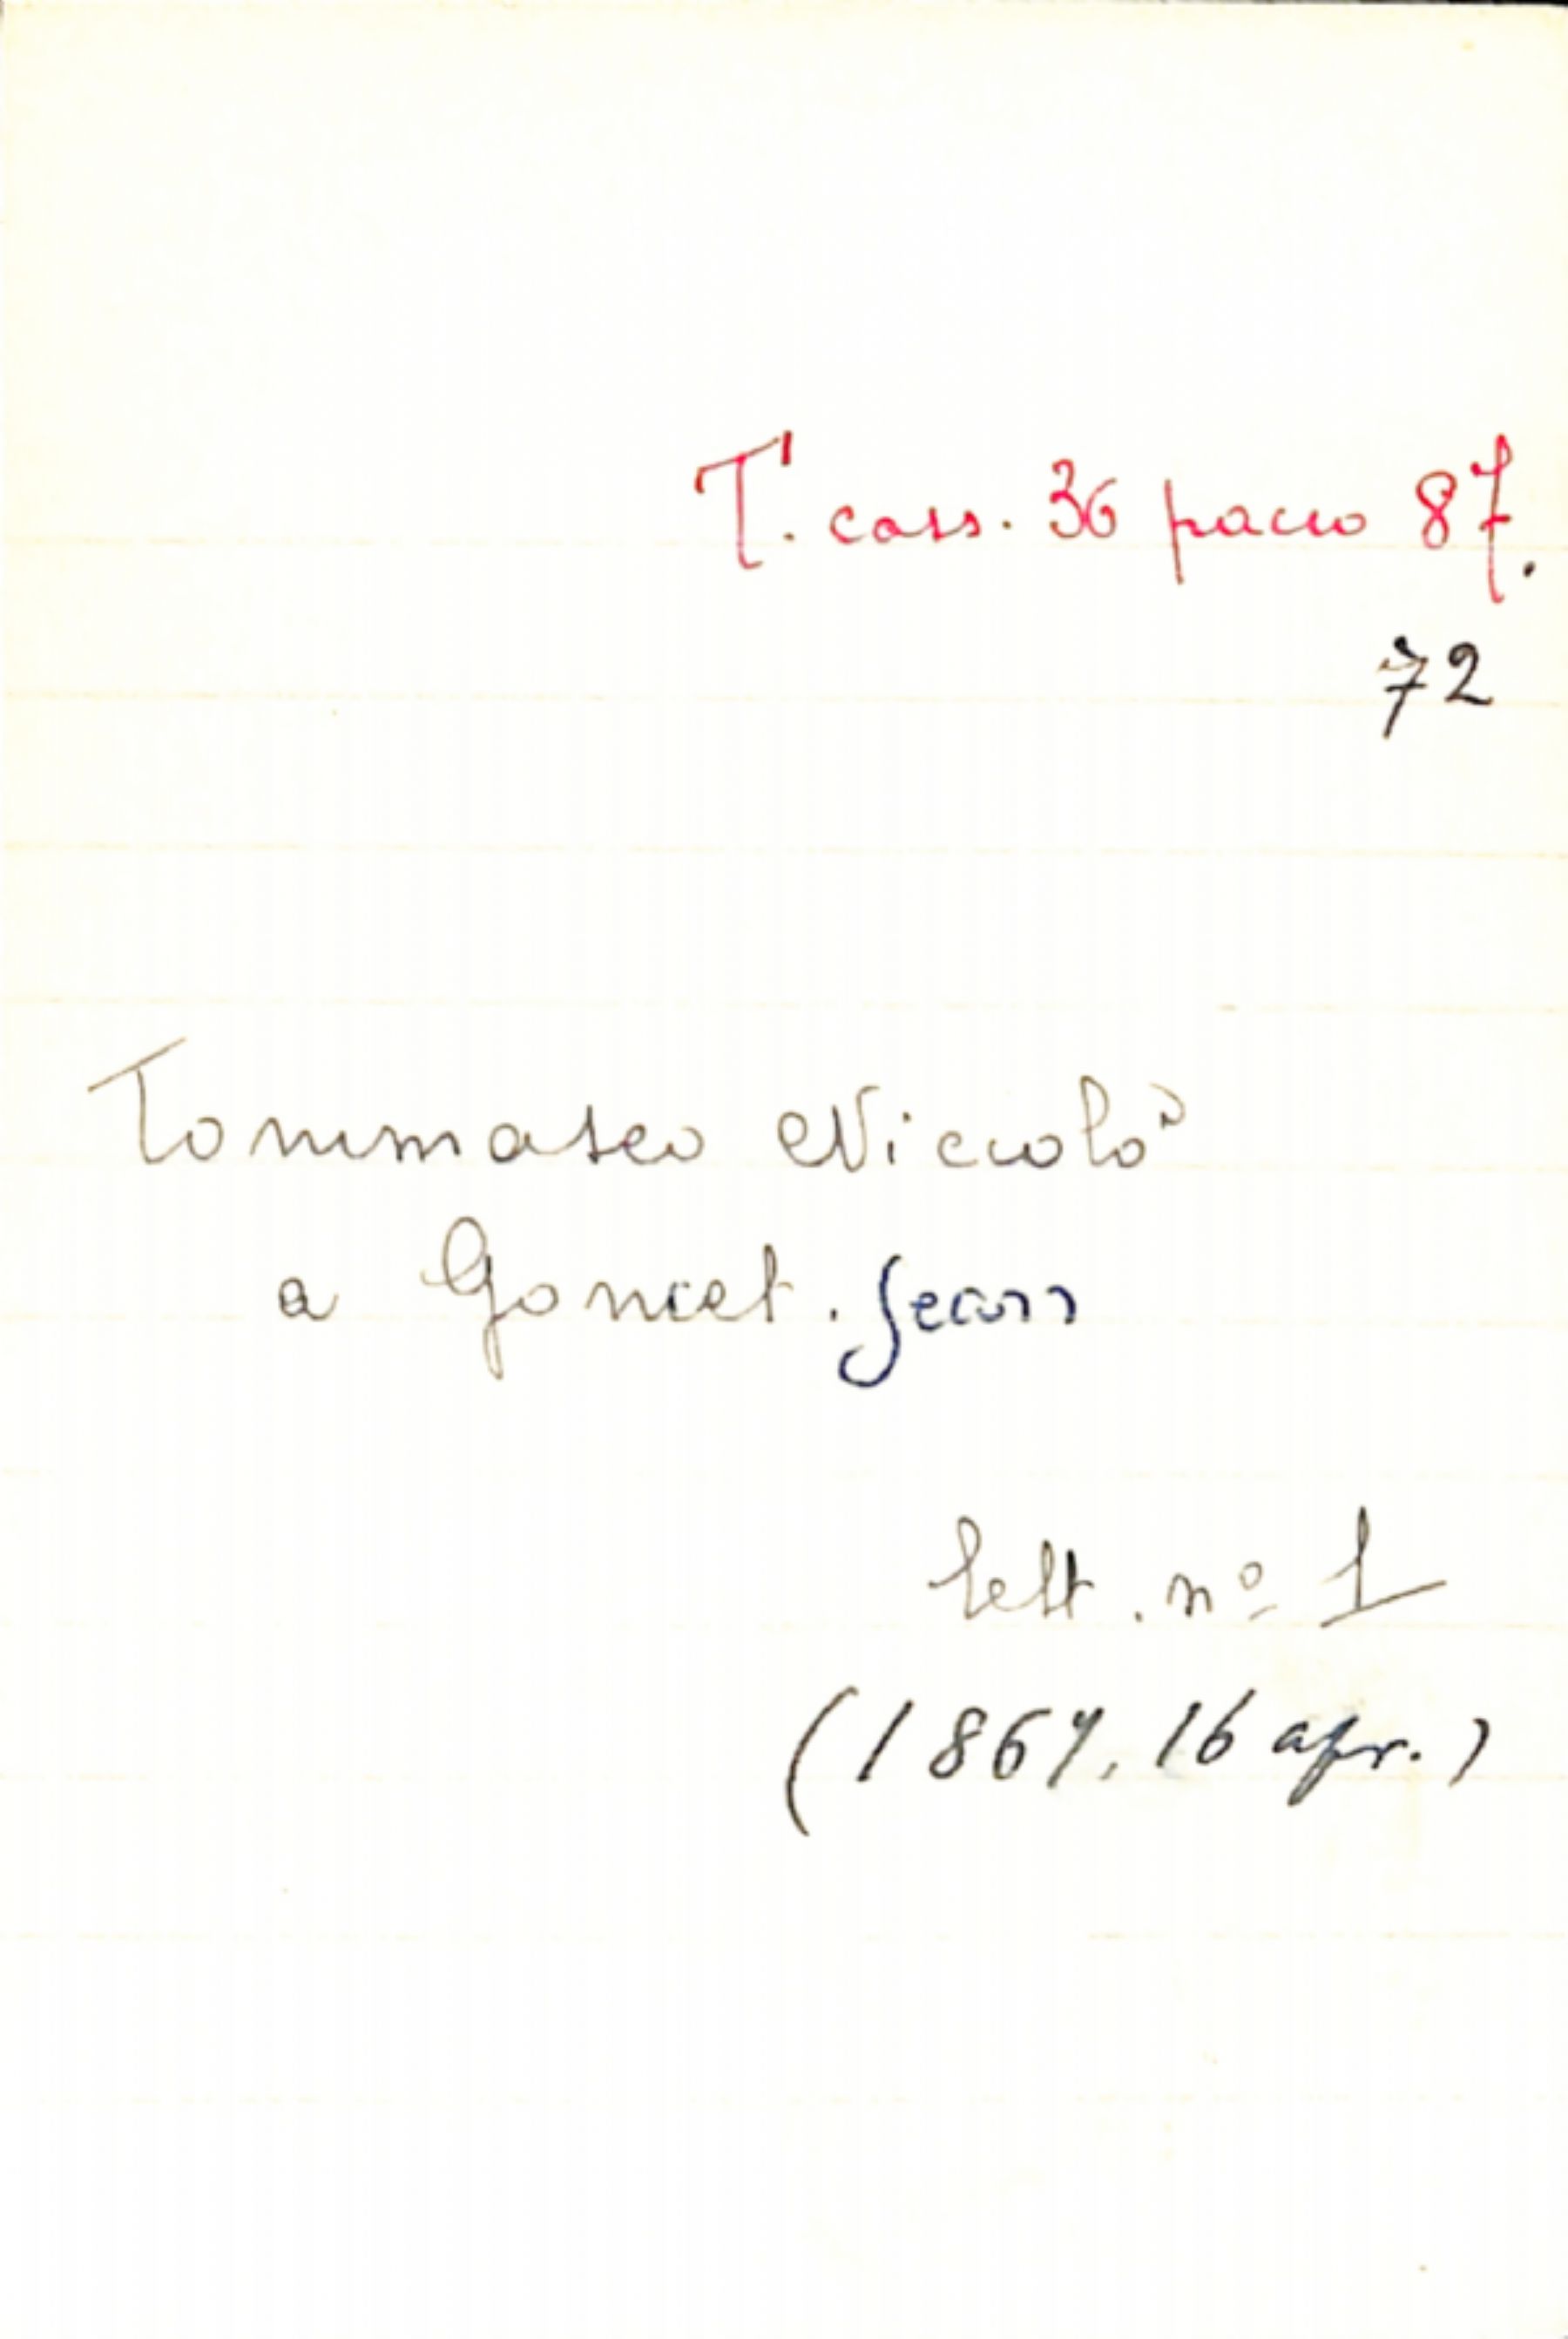 T. cass. 36 pacco 87.
72
Tommaseo Niccolò
a Goncet. Jean
lett. nº 1
(1867, 16 apr.)